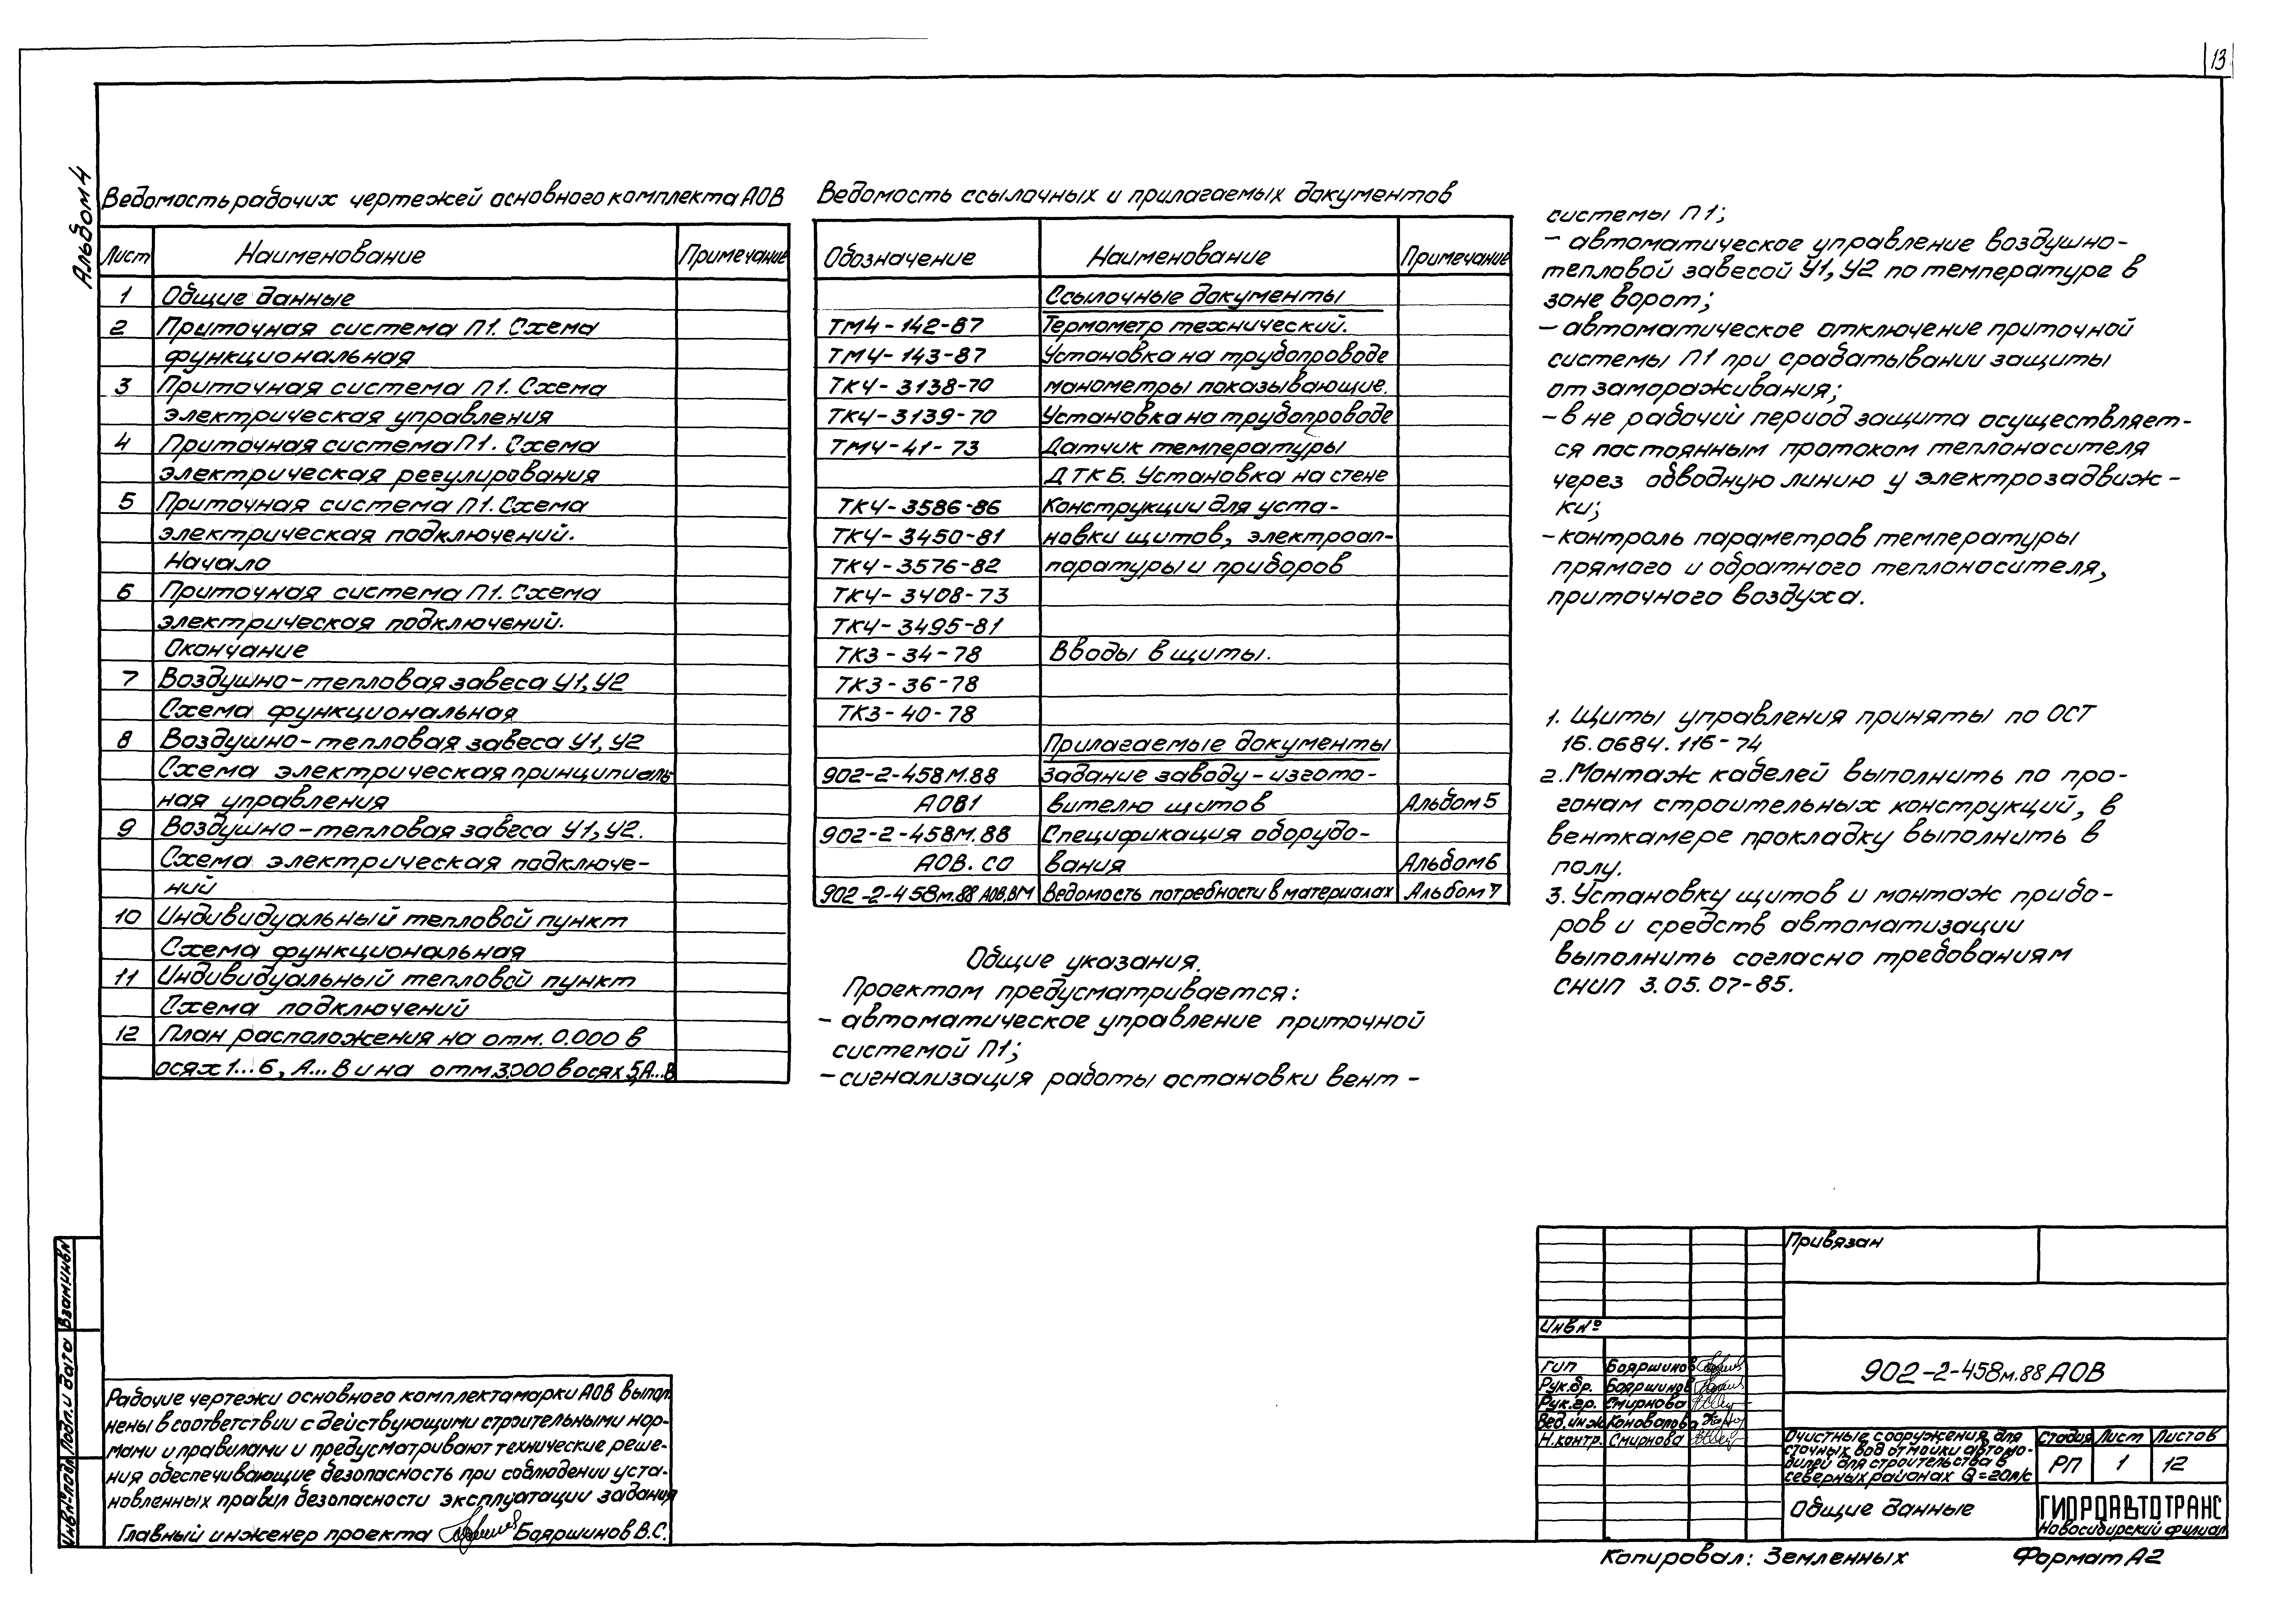 13
Альбом 4
Ведомость рабочих чертежей основного комплекта АОВ
Лист Наименование Примечание
1 Общие данные
2 Приточная система П1. Схема
функциональная
3 Приточная система П1. Схема
электрическая управления
4 Приточная система П1. Схема
электрическая регулирования
5 Приточная система П1. Схема
электрическая подключений.
Начало
6 Приточная система П1. Схема
электрическая подключений.
Окончание
7 Воздушно-тепловая завеса У1, У2
Схема функциональная
8 Воздушно-тепловая завеса У1, У2
Схема электрическая принципиаль
ная управления
9 Воздушно-тепловая завеса У1, У2.
Схема электрическая подключе-
ний
10 Индивидуальный тепловой пункт
Схема функциональная
11 Индивидуальный тепловой пункт
Схема подключений
12 План расположения на отм. 0.000 в
осях 1...6, А...В и на отм.3.000 в осях 5,А...В
Ведомость ссылочных и прилагаемых документов
Обозначение Наименование Примечание
Ссылочные документы
ТМ4-142-87 Термометр технический.
ТМЧ-143-87 Установка на трубопроводе
ТКЧ-3138-70 манометры показывающие.
ТКЧ-3139-70 Установка на трубопроводе
ТМЧ-41-73 Датчик температуры
ДТКБ. Установка на стене
ТКЧ-3586-86 Конструкции для уста-
ТКЧ-3450-81 новки щитов, электроап-
ТКЧ-3576-82 паратуры и приборов
ТКЧ-3408-73
ТКЧ-3495-81
ТК3-34-78 Вводы в щиты.
ТК3-36-78
ТК3-40-78
Прилагаемые документы
902-2-458М.88 Задание заводу-изгото-
АОВ1 вителю щитов Альбом 5
902-2-458М.88 Спецификация оборудо-
АОВ.СО вания Альбом 6
902-2-458м.88 АОВ.ВМ Ведомость потребности в материалах Альбом 7
Общие указания.
Проектом предусматривается:
- автоматическое управление приточной
системой П1;
- сигнализация работы остановки вент-
системы П1;
- автоматическое управление воздушно-
тепловой завесой У1, У2 по температуре в
зоне ворот;
- автоматическое отключение приточной
системы П1 при срабатывании защиты
от замораживания;
- в не рабочий период защита осуществляет-
ся постоянным протоком теплонасителя
через обводную линию у электрозадвиж-
ки;
- контроль параметров температуры
прямого и обратного теплоносителя,
приточного воздуха.
1. Щиты управления приняты по ОСТ
16.0684.116-74
2. Монтаж кабелей выполнить по про-
гонам строительных конструкций, в
венткамере прокладку выполнить в
полу.
3. Установку щитов и монтаж прибо-
ров и средств автоматизации
выполнить согласно требованиям
СНИП 3.05.07-85.
Инв№подл Подп. и дата Взаминв№
Рабочие чертежи основного комплекта марки АОВ выпол
нены в соответствии с действующими строительными нор-
мами и правилами и предусматривают технические реше-
ния обеспечивающие безопасность при соблюдении уста-
новленных правил безопасности эксплуатации задания
Главный инженер проекта Бояршинов В.С.
Привязан
Инв№
ГИП Бояршинов
Рук.бр. Бояршинов
Рук.гр. Смирнова
Вед.инж Коновалова
Н.контр. Смирнова
902-2-458м.88 АОВ
Очистные сооружения для
сточных вод от мойки автомо-
билей для строительства в
северных районах Q=20л/с
Стадия Лист Листов
РП 1 12
Общие данные
ГИПРОАВТОТРАНС
Новосибирский филиал
Копировал: Земленных Формат А2